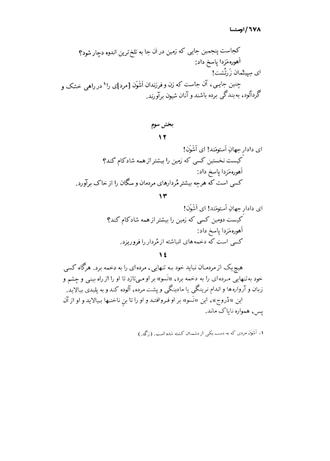 ۶۷۸/اوستا
کجاست پنجمین جایی که زمین در آن جا به تلخ‌ترین اندوه دچار شود؟
اهوره‌مزدا پاسخ داد:
ای سپیتمان زرتشت!
چنین جایی، آن جاست که زن و فرزندان اشون [مرد]ی را۱ در راهی خشک و
گردآلود، به بندگی برده باشند و آنان شیون برآورند.
بخش سوم
۱۲
ای دادار جهان استومند! ای اشون!
کیست نخستین کسی که زمین را بیشتر از همه شادکام کند؟
اهوره‌مزدا پاسخ داد:
کسی است که هرچه بیشتر مُردارهای مردمان و سگان را از خاک برآورد.
۱۳
ای دادار جهان استومند! ای اشون!
کیست دومین کسی که زمین را بیشتر از همه شادکام کند؟
اهوره‌مزدا پاسخ داد:
کسی است که دخمه‌های انباشته از مُردار را فروریزد.
۱۴
هیچ‌یک از مردمان نباید خود به تنهایی، مرده‌ای را به دخمه برد. هرگاه کسی
خود به‌تنهایی مرده‌ای را به دخمه برد، «نسو» بر او می‌تازد تا او را از راه بینی و چشم و
زبان و آرواره‌ها و اندام نرینگی یا مادینگی و پشت مرده، آلوده کند و به پلیدی بیالاید.
این «دروج»، این «نسو» بر او فروافتد و او را تا بن ناخنها بیالاید و او از آن
پس، همواره ناپاک ماند.
۱. اشون مردی که به دست یکی از دشمنان کشته شده است. (زگلد.)